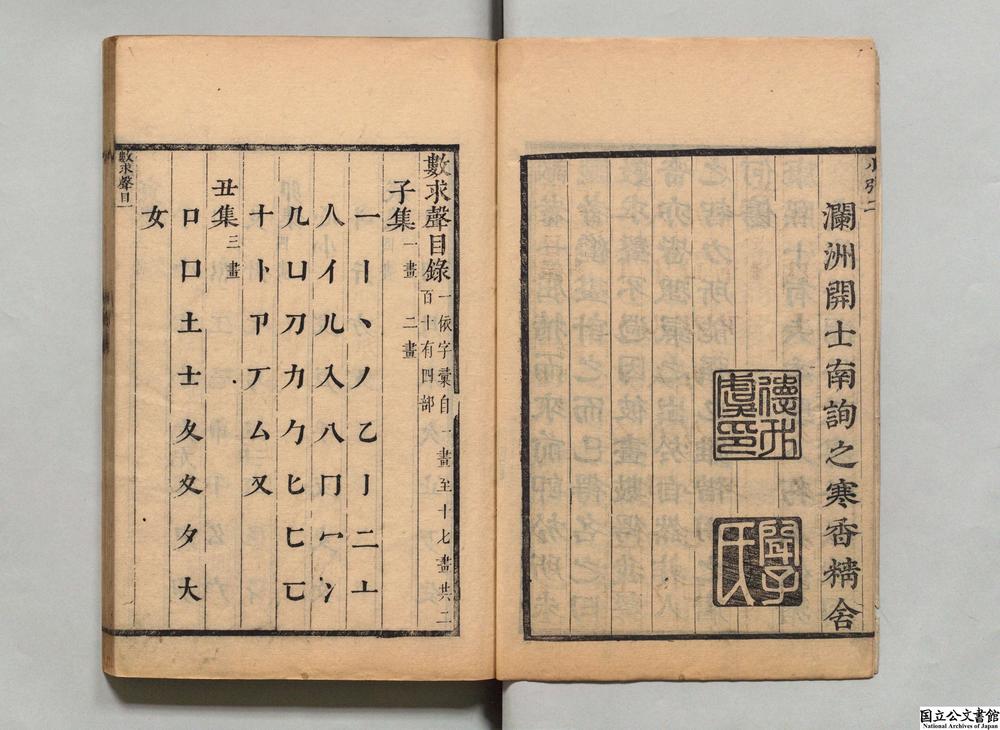 小引二
瀾洲開士南詢之寒香精舍
數求聲目錄
一依字彙自一畫至十七畫共二
百十有四部
子集
一畫 二畫
一丨丶丿乙亅二亠
人亻儿入八冂冖冫
几凵刀力勹匕匚匸
十卜卩厂厶又
丑集
三畫
口囗土士夂夊夕大
女
數求聲目一
国立公文書館
National Archives of Japan